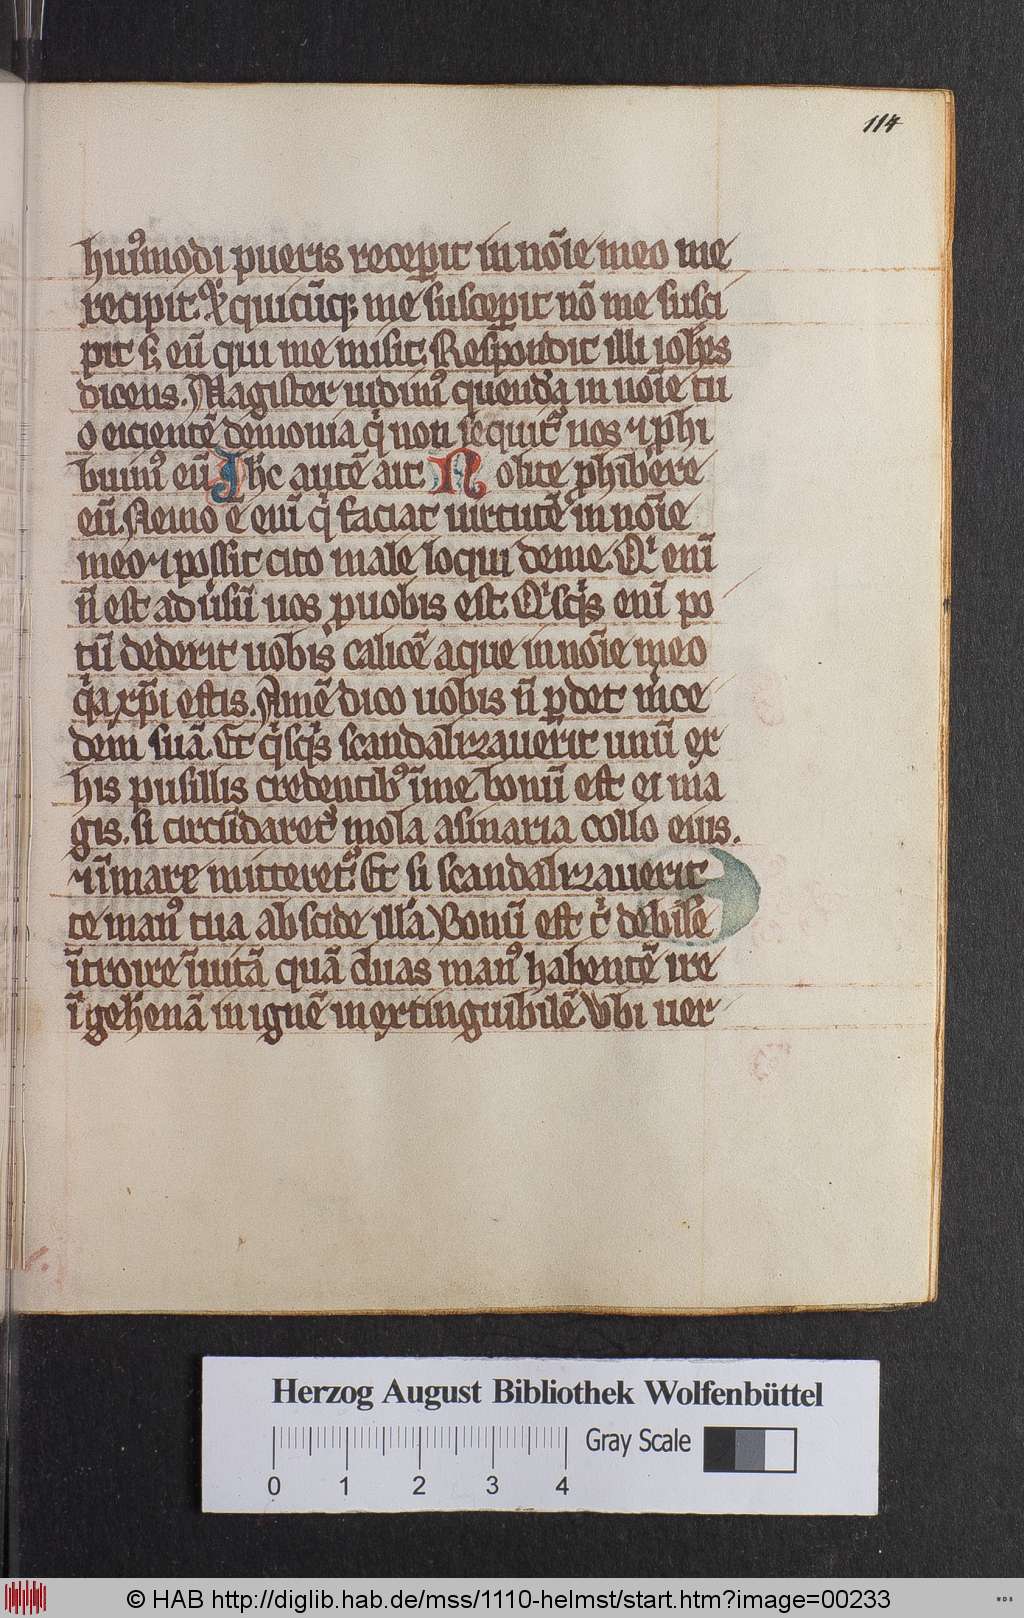 114
huiꝰmodi pueris receꝑit in nōie meo me
recipit. Et quicūqꝫ me susceꝑit nō me susci
pit sꝫ eū qui me misit. Respondit illi ioh̄es
dicens. Magister uidimꝰ quendā in nōie tu
o eicientē demonia qͥ non sequitᷣ nos ⁊ phi
buimꝰ eū Ih̄c autē ait Nolite phibere
eū. Nemo ē enī qͥ faciat uirtutē in nōie
meo ⁊ possit cito male loqui de me. Qͥ enī
n̄ est aduͥsū uos ꝓ uobis est. Qͥsqͥs enī po
tū dederit uobis calicē aque in nōie meo
qͥa xp̄i estis. Amē dico uobis n̄ ꝑdet mͥce
dem suā. Et qͥsqͥs scandalizauerit unū ex
his pusillis credentibꝰ ī me bonū est ei ma
gis. si circūdaretᷣ mola asinaria collo eius.
⁊ ī mare mitteretᷣ. Et si scandalizauerit
te manꝰ tua abscide illā. Bonū est tͥ debilē
ītroire ī uitā quā duas manꝰ habentē ire
ī gehenā in ignē inextinguibilē. Vbi uer
Herzog August Bibliothek Wolfenbüttel
Gray Scale
0 1 2 3 4
© HAB http://diglib.hab.de/mss/1110-helmst/start.htm?image=00233